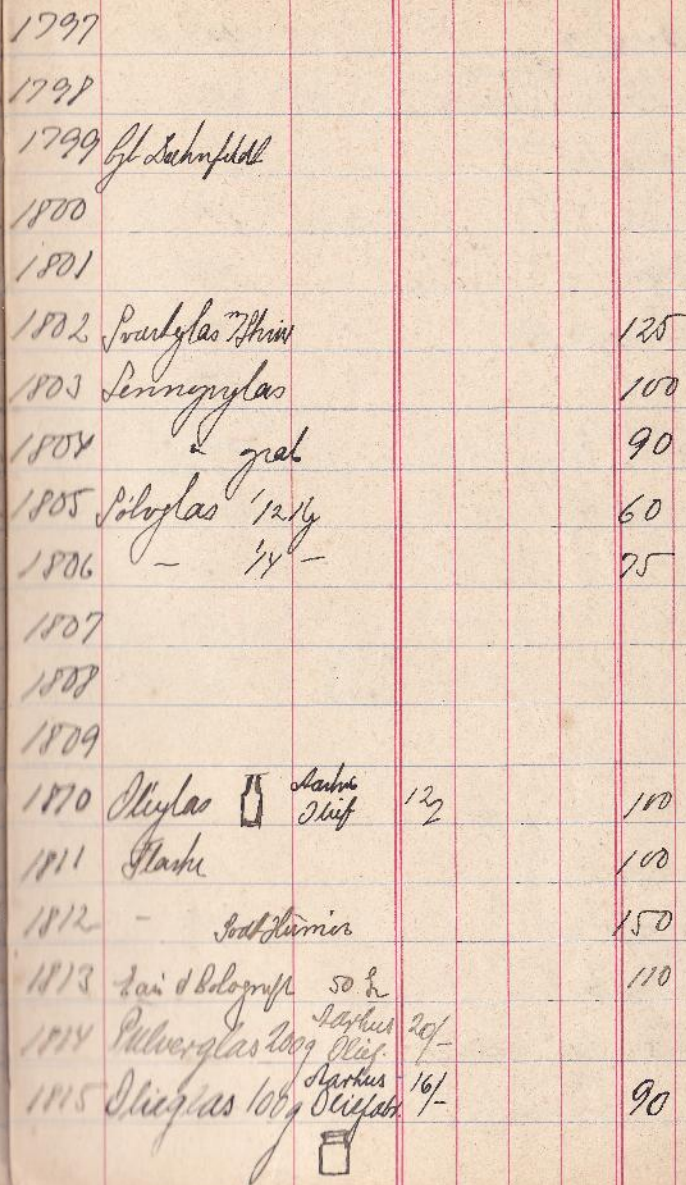 1797
1798
1799 Gl. Dæhnfeldt
1800
1801
1802 Sværtglas m/ 125
1803 Sennepsglas 100
1804 " grøt 90
1805 Sölvglas 1/2 Kg 60
1806 – 1/4 – 75
1807
1808
1809
1810 Olieglas Aarhus Olief 12/2 100
1811 Flaske 100
1812 – Godt Humör 150
1813 Eau d Cologne 50 Gr 110
1814 Pulverglas 200g Aarhus Olief. 20/-
1815 Olieglas 100g Aarhus Oliefabr. 16/- 90